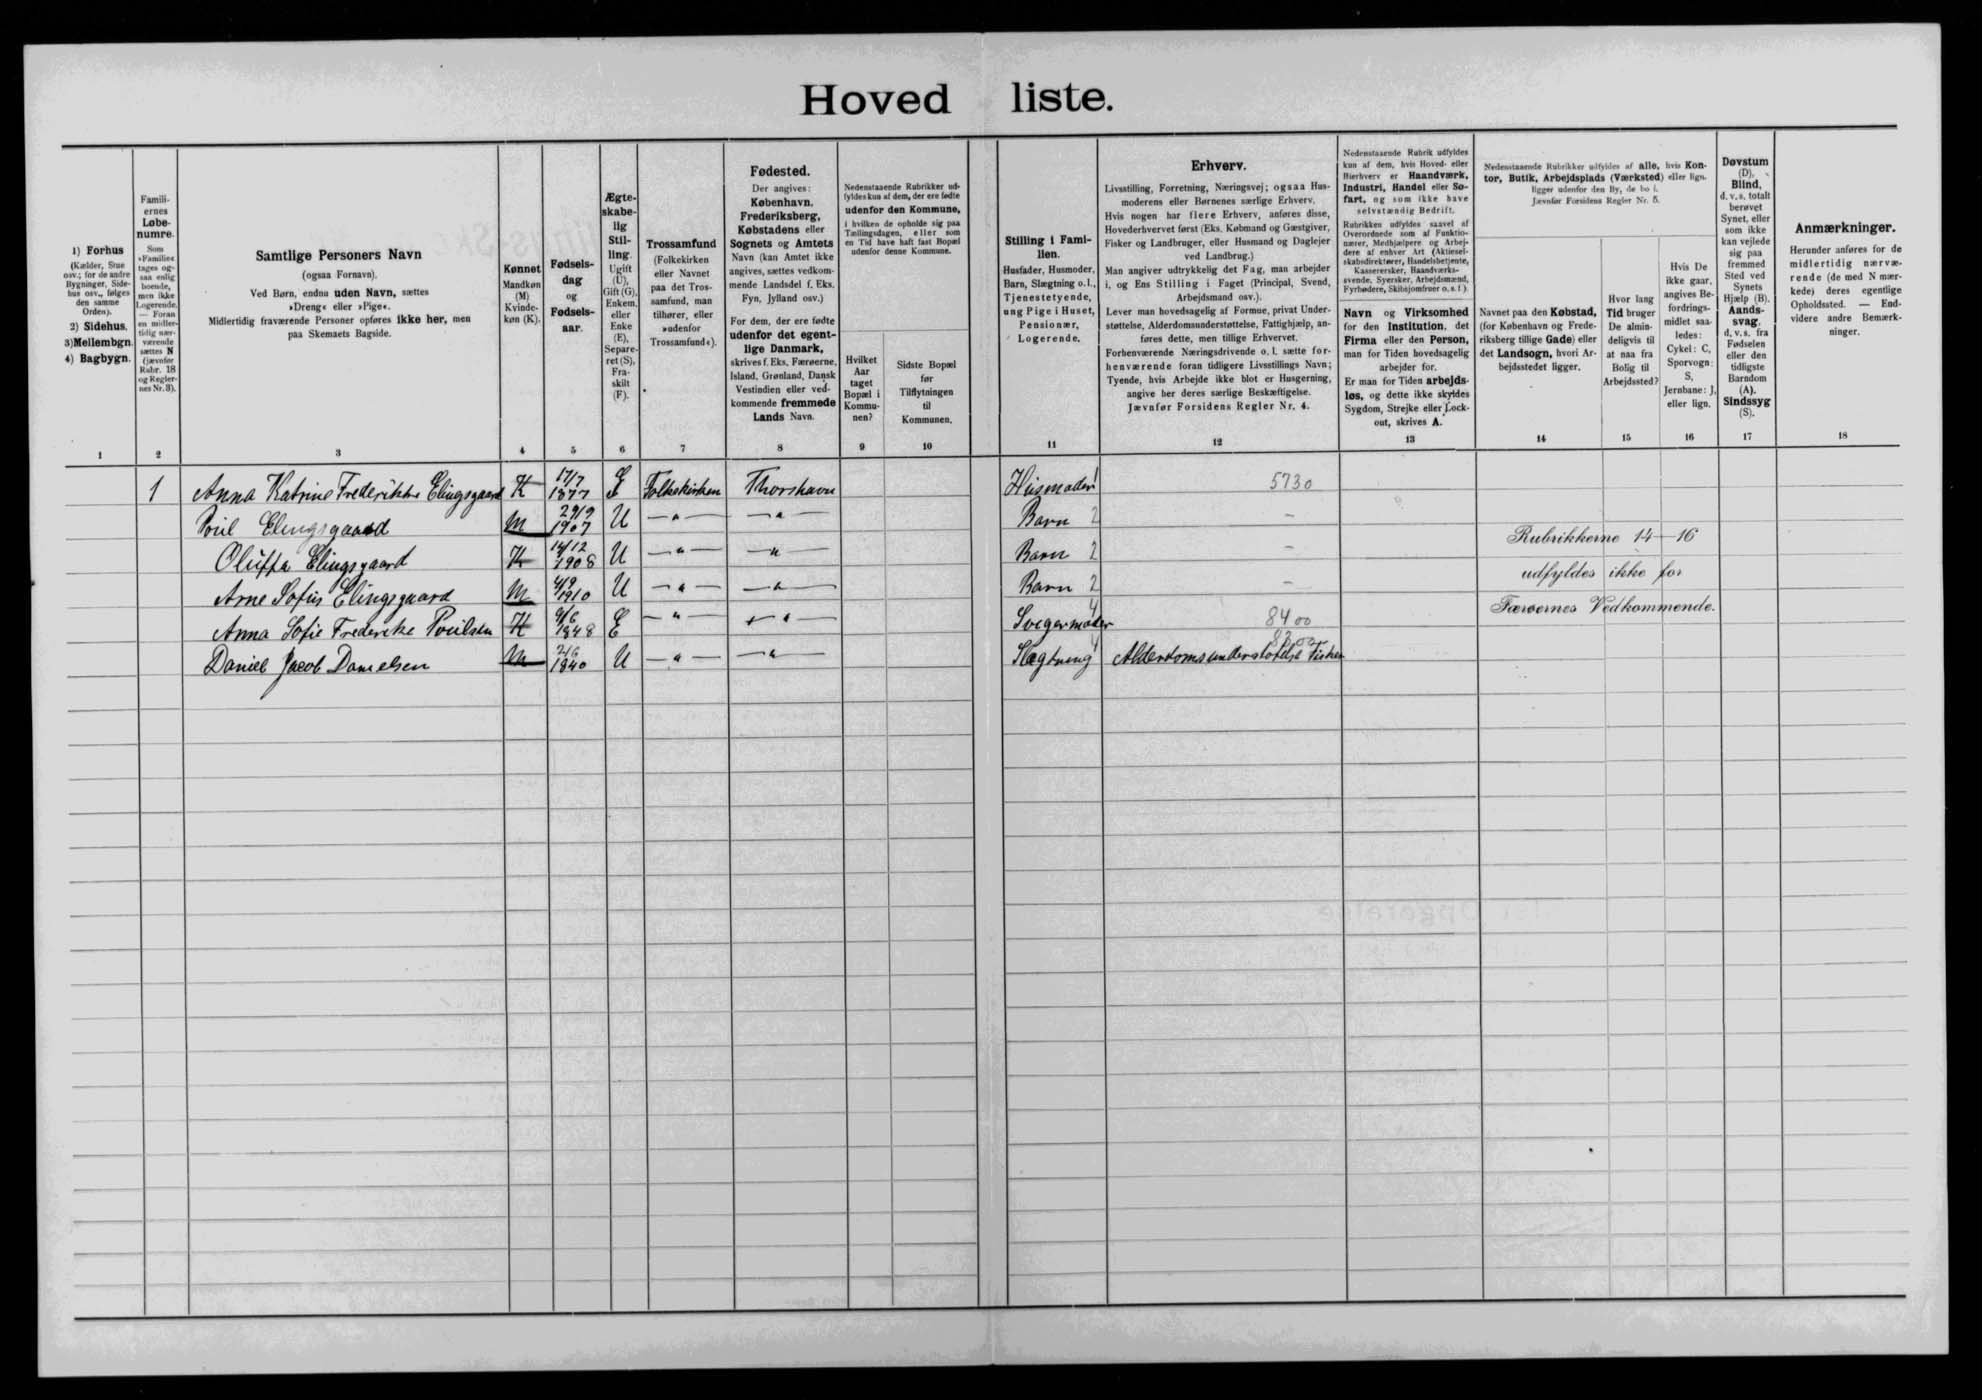 Hovedliste.
1) Forhus
(Kælder, Stue
osv.; for de andre
Bygninger, Side-
hus osv., følges
den samme
Orden).
2) Sidehus.
3) Mellembgn.
4) Bagbygn.
1
Famili-
ernes
Løbe-
numre.
Som
»Familie«
tages og-
saa enlig
boende,
men ikke
Logerende.
— Foran
en midler-
tidig nær-
værende
sættes N
(jævnfør
Rubr. 18
og Regler-
nes Nr. 3).
2
Samtlige Personers Navn
(ogsaa Fornavn).
Ved Børn, endnu uden Navn, sættes
»Dreng« eller »Pige«.
Midlertidig fraværende Personer opføres ikke her, men
paa Skemaets Bagside.
3
Kønnet
Mandkøn
(M)
Kvinde-
køn (K).
4
Fødsels-
dag
og
Fødsels-
aar.
5
Ægte-
skabe-
lig
Stil-
ling.
Ugift
(U),
Gift (G),
Enkem.
eller
Enke
(E),
Separe-
ret (S),
Fra-
skilt
(F).
6
Trossamfund
(Folkekirken
eller Navnet
paa det Tros-
samfund, man
tilhører, eller
»udenfor
Trossamfund«).
7
Fødested.
Der angives:
København,
Frederiksberg,
Købstadens eller
Sognets og Amtets
Navn (kan Amtet ikke
angives, sættes vedkom-
mende Landsdel f. Eks.
Fyn, Jylland osv.)
For dem, der ere fødte
udenfor det egent-
lige Danmark,
skrives f. Eks. Færøerne,
Island, Grønland, Dansk
Vestindien eller ved-
kommende fremmede
Lands Navn.
8
Nedenstaaende Rubrikker ud-
fyldes kun af dem, der ere fødte
udenfor den Kommune,
i hvilken de opholde sig paa
Tællingsdagen, eller som
en Tid have haft fast Bopæl
udenfor denne Kommune.
Hvilket
Aar
taget
Bopæl i
Kommu-
nen?
9
Sidste Bopæl
før
Tilflytningen
til
Kommunen.
10
Stilling i Fami-
lien.
Husfader, Husmoder,
Barn, Slægtning o.l.,
Tjenestetyende,
ung Pige i Huset,
Pensionær,
Logerende.
11
Erhverv.
Livsstilling, Forretning, Næringsvej; ogsaa Hus-
moderens eller Børnenes særlige Erhverv.
Hvis nogen har flere Erhverv, anføres disse,
Hovederhvervet først (Eks. Købmand og Gæstgiver,
Fisker og Landbruger, eller Husmand og Daglejer
ved Landbrug.)
Man angiver udtrykkelig det Fag, man arbejder
i, og Ens Stilling i Faget (Principal, Svend,
Arbejdsmand osv.).
Lever man hovedsagelig af Formue, privat Under-
støttelse, Alderdomsunderstøttelse, Fattighjælp, an-
føres dette, men tillige Erhvervet.
Forhenværende Næringsdrivende o. l. sætte for-
henværende foran tidligere Livsstillings Navn;
Tyende, hvis Arbejde ikke blot er Husgerning,
angive her deres særlige Beskæftigelse.
Jævnfør Forsidens Regler Nr. 4.
12
Nedenstaaende Rubrik udfyldes
kun af dem, hvis Hoved- eller
Bierhverv er Haandværk,
Industri, Handel eller Sø-
fart, og som ikke have
selvstændig Bedrift.
Rubrikkes udfyldes saavel af
Overordnede som af Funktio-
nærer, Medhjælpere og Arbej-
dere af enhver Art (Aktiesel-
skabsdirektører, Handelsbetjente,
Kasserersker, Haandværks-
svende, Syersker, Arbejdsmænd,
Fyrbødere, Skibsjomfruer o.s.f.).
Navn og Virksomhed
for den Institution, det
Firma eller den Person,
man for Tiden hovedsagelig
arbejder for.
Er man for Tiden arbejds-
løs, og dette ikke skyldes
Sygdom, Strejke eller Lock-
out, skrives A.
13
Nedenstaaende Rubrikker udfyldes af alle, hvis Kon-
tor, Butik, Arbejdsplads (Værksted) eller lign.
ligger udenfor den By, de bo i.
Jævnfør Forsidens Regler Nr. 5.
Navnet paa den Købstad,
(for København og Frede-
riksberg tillige Gade) eller
det Landsogn, hvori Ar-
bejdsstedet ligger.
14
Hvor lang
Tid bruger
De almin-
deligvis til
at naa fra
Bolig til
Arbejdssted?
15
Hvis De
ikke gaar,
angives Be-
fordrings-
midlet saa-
ledes:
Cykel: C,
Sporvogn:
S,
Jernbane: J,
eller lign.
16
Døvstum
(D).
Blind,
d. v. s. totalt
berøvet
Synet, eller
som ikke
kan vejlede
sig paa
fremmed
Sted ved
Synets
Hjælp (B).
Aands-
svag,
d. v. s. fra
Fødselen
eller den
tidligste
Barndom
(A).
Sindssyg
(S).
17
Anmærkninger.
Herunder anføres for de
midlertidig nærvæ-
rende (de med N mær-
kede) deres egentlige
Opholdssted. — End-
videre andre Bemærk-
ninger.
18
1 Anna Katrine Frederikke Elingsgaard K 17/7 1877 E Folkekirken Thorshavn Husmoder 1 5730
Poul Elingsgaard M 29/9 1907 U — " — — " — Barn 2 —
Oluffa Elingsgaard K 14/12 1908 U — " — — " — Barn 2 —
Rubrikkerne 14—16
Arne Sofus Elingsgaard M 4/9 1910 U — " — — " — Barn 2 —
udfyldes ikke for
Anna Sofie Frederike Poulsen K 9/6 1848 E — " — — " — Svigermoder 4 8400
Færøernes Vedkommende.
Daniel Jacob Danielsen M 2/6 1840 U — " — — " — Slægtning 4 Alderdomsunderstøtelse Fisker 8200